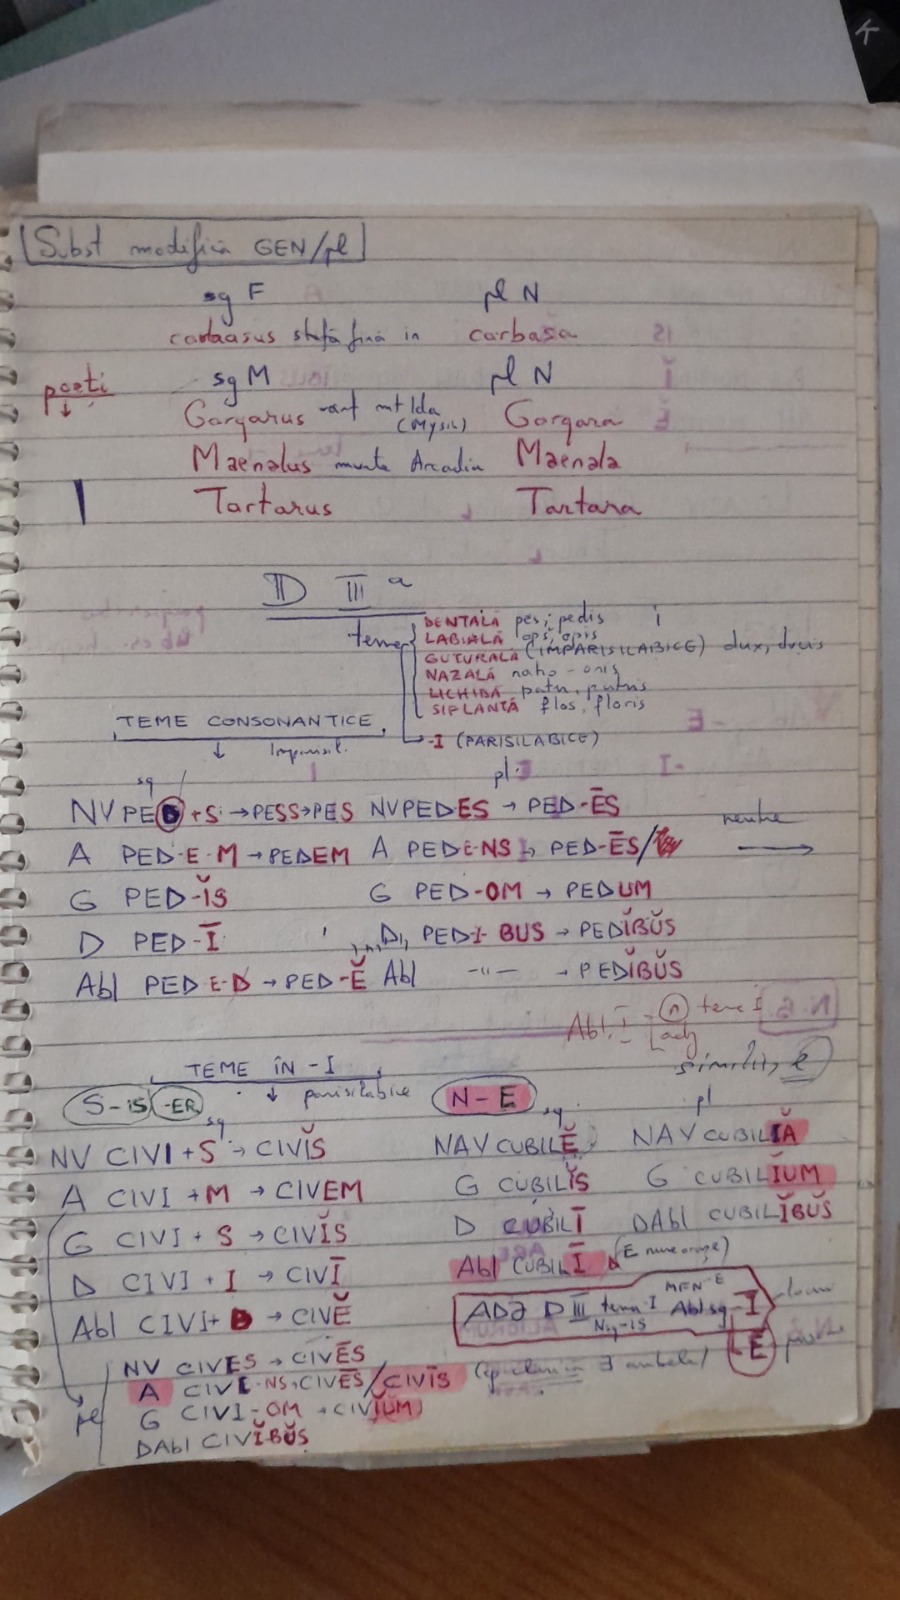 Subst modifică GEN/pl
sg F pl N
carbasus stofă fină in carbasa
poeți sg M pl N
Gargarus mt Ida (Mysia) Gargara
Maenalus munte Arcadia Maenala
Tartarus Tartara
D III a
teme DENTALĂ pes, pedis
LABIALĂ ops, opis
GUTURALĂ (IMPARISILABICE) dux, ducis
NAZALĂ natio - onis
LICHIDĂ
SIFLANTĂ flos, floris
TEME CONSONANTICE
↓ Imparisil. -I (PARISILABICE)
sg pl:
NV PED + S → PESS → PES NV PEDES → PED-ĒS
neutre
A PED-E-M → PEDEM A PEDE-NS → PED-ĒS/
G PED-ĬS G PED-OM → PEDUM
D PED-Ī D, PED-I-BUS → PEDĬBŬS
Abl PED E-D → PED-Ĕ Abl -"- → PEDĬBŬS
N.B.
Abl. Ī - n teme I
adj
TEME ÎN -I
↓ parisilabice
S-IS -ER N-E
sg sg pl
NV CIVI + S → CIVĬS NAV CUBILĔ NAV CUBILIĂ
A CIVI + M → CIVEM G CUBILĬS G CUBILIUM
G CIVI + S → CIVĬS D CUBILĪ DAbl CUBILĬBŬS
D CIVI + I → CIVĪ Abl CUBILĪ
Abl CIVI + D → CIVĔ ADJ D III tema-I Abl sg -I
N sg -IS
-E
NV CIVES → CIVĒS
A CIVE-NS → CIVĒS/CIVĪS
pl G CIVI-OM → CIVIŬM
DAbl CIVĬBŬS